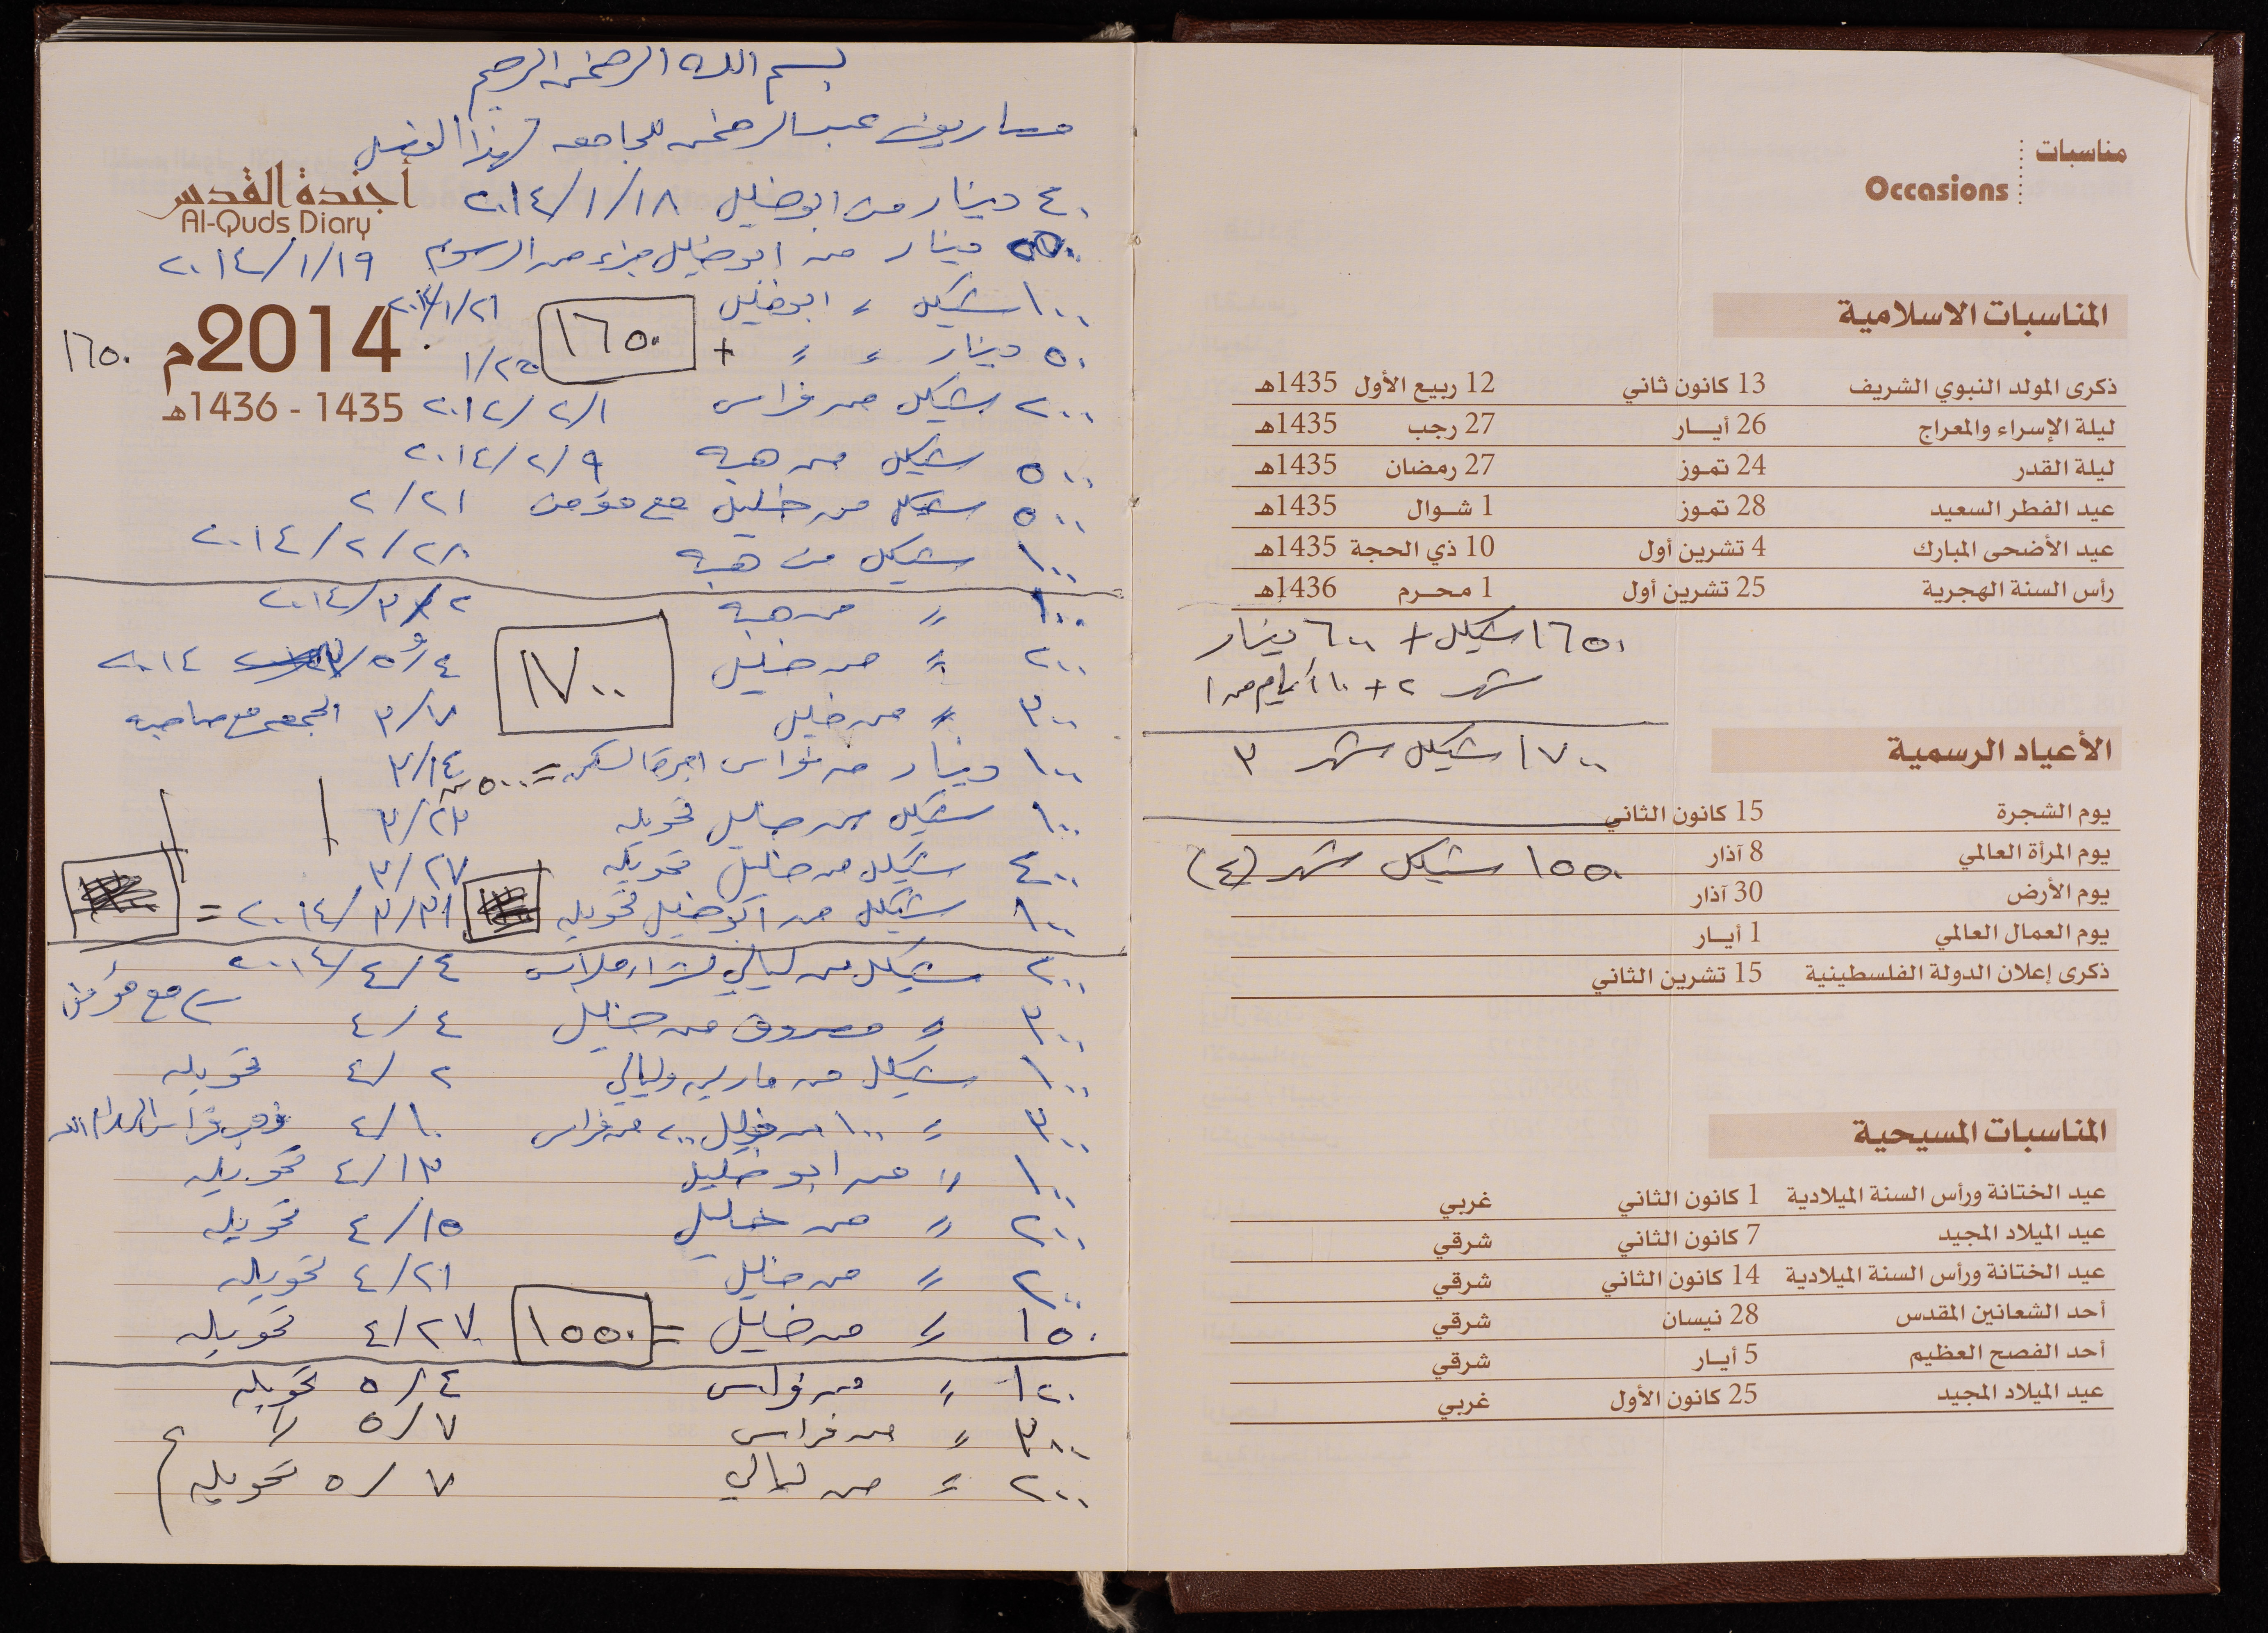 مناسبات
Occasions
المناسبات الاسلامية
ذكرى المولد النبوي الشريف 13 كانون ثاني 12 ربيع الأول 1435هـ
ليلة الإسراء والمعراج 26 أيـــار 27 رجب 1435هـ
ليلة القدر 24 تمـوز 27 رمضان 1435هـ
عيد الفطر السعيد 28 تمـوز 1 شــوال 1435هـ
عيد الأضحى المبارك 4 تشرين أول 10 ذي الحجة 1435هـ
رأس السنة الهجرية 25 تشرين أول 1 محــرم 1436هـ
١٦٥٠ شيكل + ٦٠٠ دينار
شهر ٢ + ١٠ أيام من ١
الأعياد الرسمية
١٧٠٠ شيكل شهر ٣
يوم الشجرة 15 كانون الثاني
يوم المرأة العالمي 8 آذار
١٥٥٠ شيكل شهر (٤)
يوم الأرض 30 آذار
يوم العمال العالمي 1 أيـــار
ذكرى إعلان الدولة الفلسطينية 15 تشرين الثاني
المناسبات المسيحية
عيد الختانة ورأس السنة الميلادية 1 كانون الثاني غربي
عيد الميلاد المجيد 7 كانون الثاني شرقي
عيد الختانة ورأس السنة الميلادية 14 كانون الثاني شرقي
أحد الشعانين المقدس 28 نيسان شرقي
أحد الفصح العظيم 5 أيـــار شرقي
عيد الميلاد المجيد 25 كانون الأول غربي
بسم الله الرحمن الرحيم
مصاريف عبد الرحمن للجامعه لهذا الفصل
٤٠ دينار من ابو خليل ٢٠١٤/١/١٨
أجندة القدس
Al-Quds Diary
دينار من ابو خليل جزء من الرسوم ٢٠١٤/١/١٩
١٠٠ شيكل 〃 ابو خليل ٢٠١٤/١/٢١
٥٠ دينار 〃 〃 + ١٦٥٠ ١/٢٥
2014م
١٦٥٠
٢٠٠ شيكل من فراس ٢٠١٢/٢/١
1435 - 1436هـ
٥٠٠ شيكل من هبه ٢٠١٤/٢/٩
٥٠٠ شيكل من خليل مع مؤمن ٢/٢١
١٠٠ شيكل من هبه ٢٠١٤/٢/٢٨
١٠٠ 〃 من هبه ٢٠١٤/٣/٢
٢٠٠ 〃 من خليل ١٧٠٠ ٢٠١٤
٣٠٠ 〃 من خليل ٣/٧ الجمعه مع صاحبه
١٠٠ دينار من فراس اجرة السكن = ٥٠٠ ٣/١٤
١٠٠ شيكل من خليل تحويله ٣/٢٣
٤٠٠ شيكل من خليل تحويله ٣/٢٧
١٠٠ شيكل من ابو خليل تحويله ٢٠١٤/٣/٣١ =
٢٠٠ شيكل من ليالي ٢٠١٤/٤/٤
٣٠٠ 〃 مصروف من خليل ٤/٤ مع مؤمن
١٠٠ شيكل من ماريه وليالي ٤/٢ تحويله
٣٠٠ 〃 ١٠٠ من خليل ٢٠٠ من فراس ٤/١٠
١٠٠ 〃 من ابو خليل ٤/١٣ تحويله
٢٠٠ 〃 من خليل ٤/١٥ تحويله
٢٠٠ 〃 من خليل ٤/٢١ تحويله
١٥٠ 〃 من خليل = ١٥٥٠ ٤/٢٧ تحويله
١٢٠ 〃 من فراس ٥/٤ تحويله
٣٠٠ 〃 من فراس ٥/٧ 〃
٢٠٠ 〃 من ليالي ٥/٧ تحويله